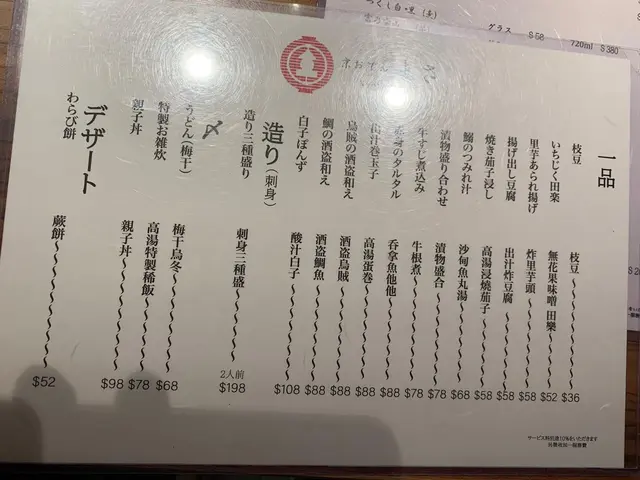 一品
枝豆
枝豆 $36
いちじく田楽
無花果味噌田樂 $52
里芋あられ揚げ
炸里芋頭 $58
揚げ出し豆腐
出汁炸豆腐 $58
焼き茄子浸し
高湯浸燒茄子 $58
鰯のつみれ汁
沙甸魚丸湯 $68
漬物盛り合わせ
漬物盛合 $78
牛すじ煮込み
牛根煮 $78
のタルタル
吞拿魚他他 $88
汁巻玉子
高湯蛋巻 $88
烏賊の酒盗和え
酒盗烏賊 $88
鯛の酒盗和え
酒盗鯛魚 $88
白子ぽんず
酸汁白子 $108
造り(刺身)
造り三種盛り
刺身三種盛 2人前 $198
〆
うどん(梅干)
梅干烏冬 $68
特製お雑炊
高湯特製稀飯 $78
親子丼
親子丼 $98
デザート
わらび餅
蕨餅 $52
サービス料別途10%をいただきます
另應收加一服務費
京おでん
グラス $58 720ml $380